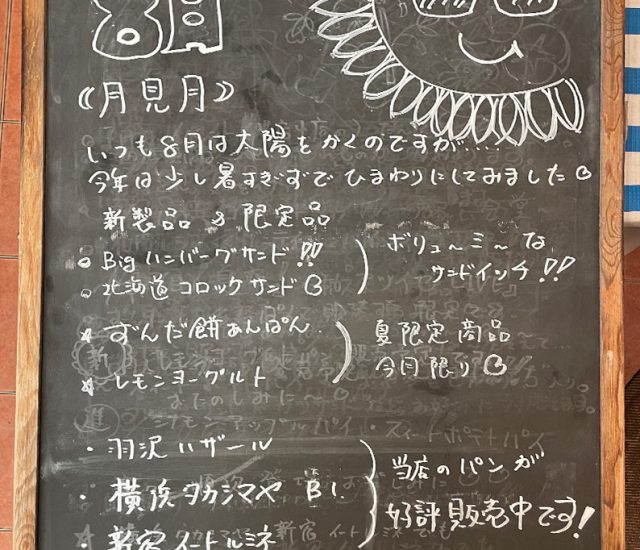 8月
《月見月》
いつも8月は太陽をかくのですが、、、
今年は少し暑すぎずでひまわりにしてみました
新製品&限定品
Big ハンバーグサンド!!
北海道コロッケサンド
ボリュ〜ミ〜な
サンドイッチ!!
ずんだ餅あんぱん
レモンヨーグルト
夏限定商品
今月限り
・羽沢ハザール
・横浜タカシマヤ B1.
・新宿イートルミネ
当店のパンが
好評販売中です!